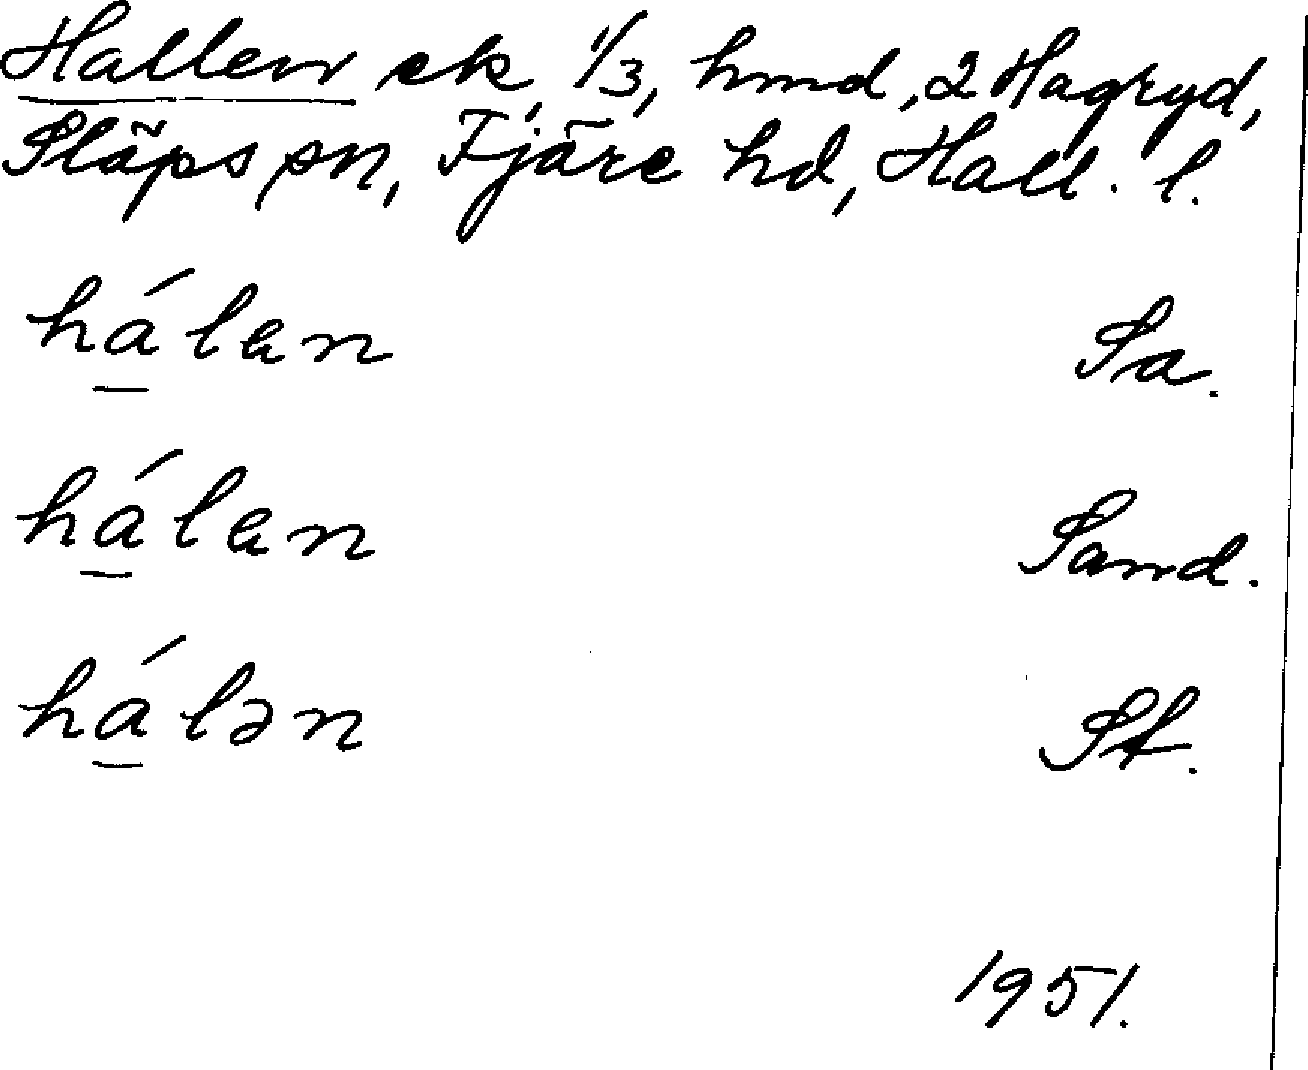 Hallen ek, 1/3, hmd, 2 Hagryd,
Släps sn, Fjäre hd, Hall. l.
hálen Sa.
hálen Sand.
hálən St.
1951.